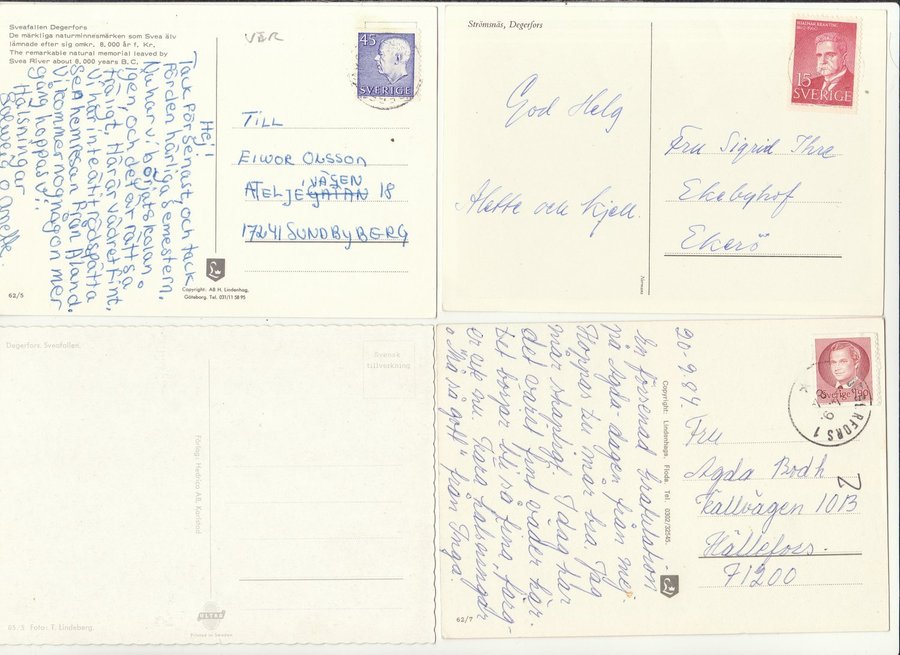 Sveafallen Degerfors
De märkliga naturminnesmärken som Svea älv
lämnade efter sig omkr. 8,000 år f. Kr.
The remarkable natural memorial leaved by
Svea River about 8,000 years B.C.
VER
45
SVERIGE
Hej!
Tack för senast, och tack
för den härliga semestern.
Nu har vi börjat skolan
igen, och det är rätt så
tråkigt. Här är vädret fint.
Vi har inte ätit rödspätta
sen hemresan från Åland.
Vi kommer nog någon mer
gång hoppas vi!
Hälsningar
Solweig o Anette.
TILL
EIWOR OLSSON
VÄGEN
ATELJÉGATAN 18
17241 SUNDBYBERG
62/5
Copyright. AB H. Lindenhag,
Göteborg. Tel. 031/11 58 95
Strömsnäs, Degerfors
HJALMAR BRANTING
15
SVERIGE
God Helg
Alette och Kjell.
Fru Sigrid Thre
Ekebyhof
Ekerö
Degerfors. Sveafallen.
Svensk
tillverkning
Förlag: Hedrica AB, Karlstad
ULTRA
Printed in Sweden
65/5 Foto: T. Lindeberg.
20-9.84.
En försenad Gratulation
på Agda-dagen från mej.
Hoppas du mår bra. Jag
mår skapligt. I dag har
det varit fint väder här.
Det börjar bli så fina färg-
er ute nu. Kära hälsningar
o Må så gott" från Inga.
Copyright: Lindenhags, Floda Tel. 0302/32645.
62/7
Sverige 1.90
RFORS 1
Fru
Agda Bodh
Källvägen 10B
Hällefors.
71200
2